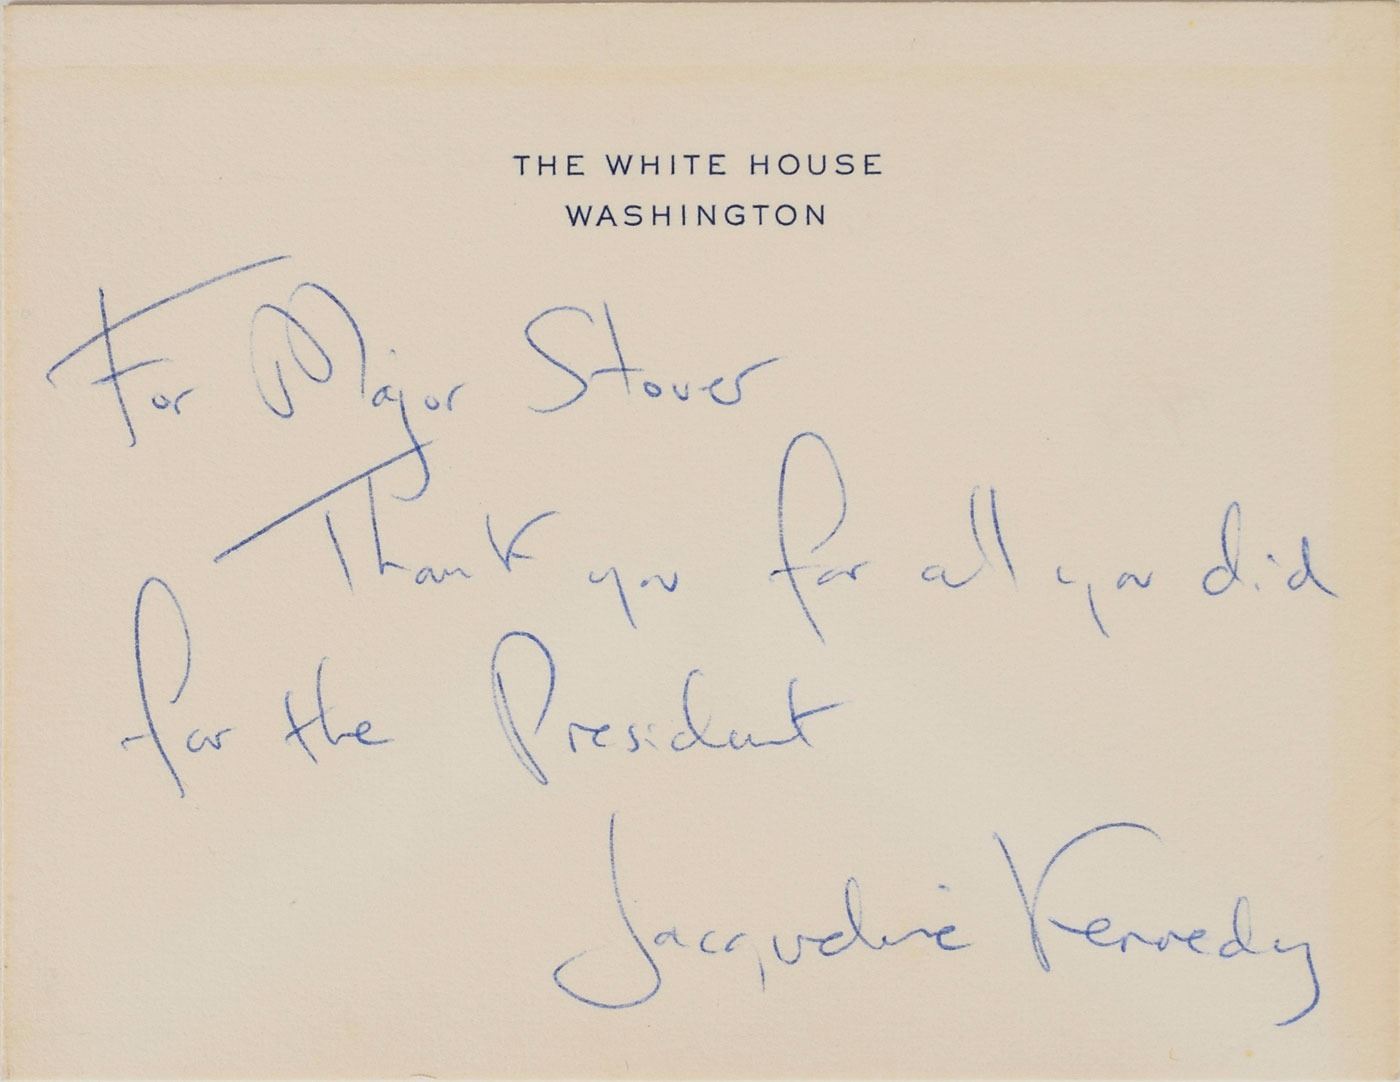 THE WHITE HOUSE
WASHINGTON
For Major Stover
Thank you for all you did
for the President
Jacqueline Kennedy